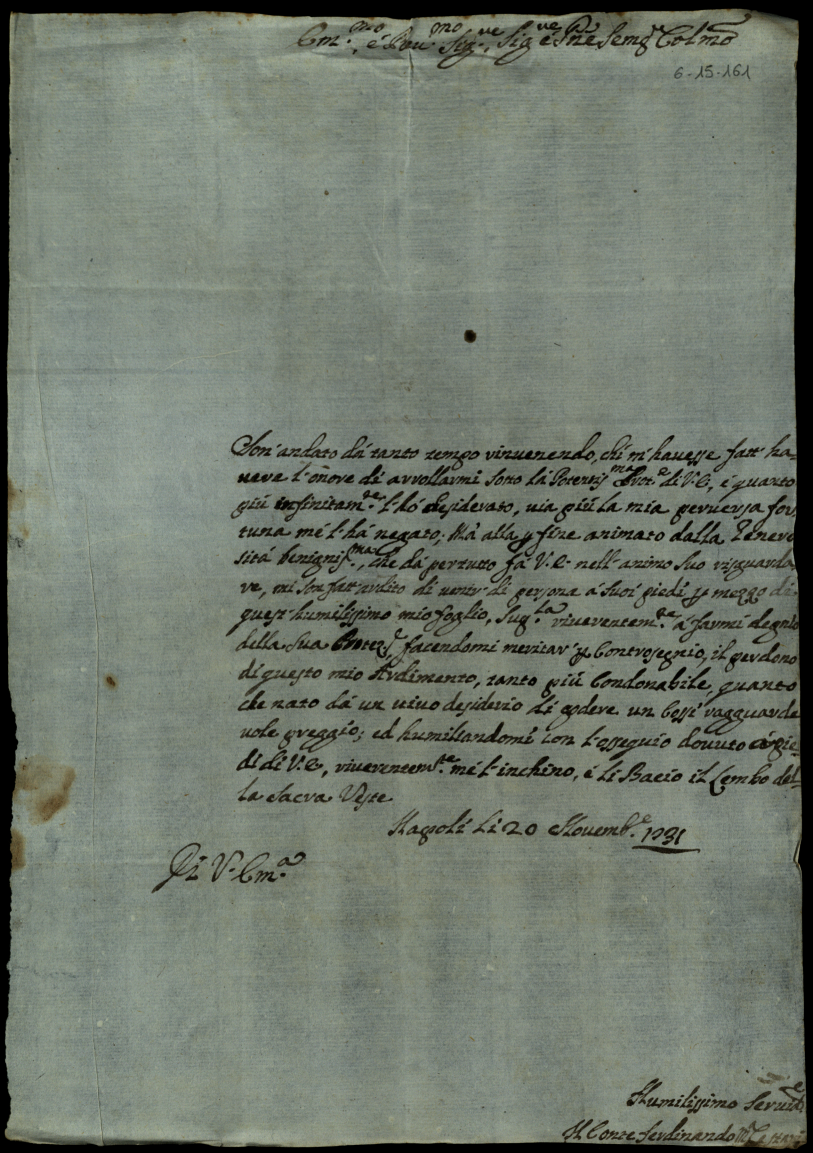 Em.mo é Reu.mo Sig.re, Sig.re é Pne Semp.e Colmo
6-15-161
Son' andato dá tanto tempo rinuenendo, chi m'hauesse fatt' ha=
uere l'onore di arrollarmi sotto la Potentiss.ma Prot.e di V.E., é quanto
piú infinitam.te l'hó desiderato, uia piú la mia peruersa for
tuna mé l'há negato; Má alla p fine animato dalla Genero
sitá benigniss.ma, che dá pertutto fá V.E. nell'animo Suo risguarda
re, mi son fatt' ardito di uenir di persona á Suoi piedi, p mezzo di
quest' humilissimo mio foglio, Sup.la riuerentem.te á farmi degno
della Sua Protez.e, facendomi meritar' p Controsegnio, il perdono
di questo mio Ardimento, tanto piú Condonabile, quanto
che nato dá un uiuo desiderio di godere un Cossí ragguarde
uole preggio; ed humiliandomi con l'ossequio douuto á pie=
di di V.E., riuerentem.te mé l'inchino, é li Bacio il Lembo del=
la Sacra Veste
Napoli li 20 Nouemb.e 1731
Di V. Em.a
Humilissimo Seruid.e
Il Conte Ferdinando